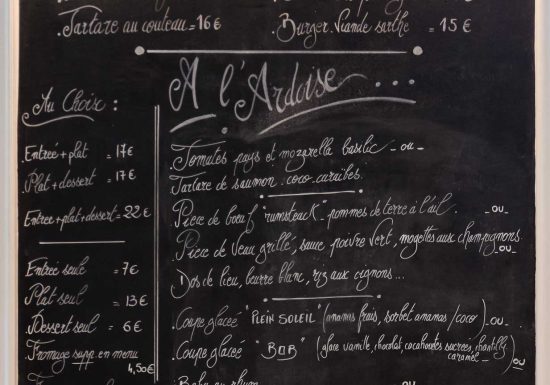 .Tartare au couteau = 16 €
Burger Viande sarthe = 15 €
A l'Ardoise ...
Au Choix :
.Entrée + plat = 17€
.Plat + dessert = 17€
.Entrée + plat + dessert = 22€
.Entrée seule = 7€
Plat seul = 13€
.Dessert seul = 6€
.Fromage supp. en menu
4,50€
.Tomates pays et mozarella basilic - ou -
.Tartare de saumon coco-caraïbes.
.Pièce de bœuf "rumsteack" pommes de terre à l'ail. - ou -
.Pièce de Veau grillé, sauce poivre vert, mogettes aux champignons.
- ou -
.Dos de lieu, beurre blanc, riz aux oignons...
.Coupe glacée "PLEIN SOLEIL" (ananas frais, sorbet ananas / coco) - ou -
.Coupe glacée "BOB" (glace vanille, chocolat, cacahouètes sucrées, chantilly
caramel - ou -
.Baba au rhum